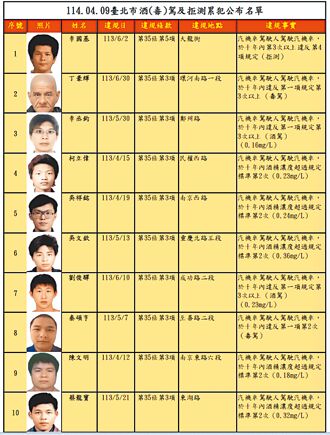 114.04.09臺北市酒(毒)駕及拒測累犯公布名單
照片 違規日 違規條款 違規地點 違規事實
1 113/6/2 第35條第5項 大龍街
汽機車駕駛人駕駛汽機車，
於十年內第3次以上違反第4
項規定 (拒測)
2 113/6/30 第35條第3項 環河南路一段
汽機車駕駛人駕駛汽機車，
於十年內違反第一項規定第
3次以上 (毒駕)
3 113/5/30 第35條第3項 鄭州路
汽機車駕駛人駕駛汽機車，
於十年內違反第一項規定第
3次以上 (酒駕)
(0.16mg/L)
4 柯立偉 113/4/15 第35條第3項 民權西路
汽機車駕駛人駕駛汽機車，
於十年內酒精濃度超過規定
標準第2次 (0.23mg/L)
5 吳祥銘 113/4/19 第35條第3項 南京西路
汽機車駕駛人駕駛汽機車，
於十年內酒精濃度超過規定
標準第2次 (0.24mg/L)
6 吳文欽 113/5/13 第35條第3項 重慶北路三段
汽機車駕駛人駕駛汽機車，
於十年內酒精濃度超過規定
標準第2次 (0.36mg/L)
7 劉俊驛 113/6/10 第35條第3項 成功路二段
汽機車駕駛人駕駛汽機車，
於十年內違反第一項規定第
3次以上 (酒駕)
(0.23mg/L)
8 秦碩亨 113/5/7 第35條第3項 至善路二段
汽機車駕駛人駕駛汽機車，
於十年內違反第一項第2次
(毒駕)
9 陳文明 113/4/12 第35條第3項 南京東路六段
汽機車駕駛人駕駛汽機車，
於十年內酒精濃度超過規定
標準第2次 (0.18mg/L)
10 蔡龍寶 113/5/21 第35條第3項 東湖路
汽機車駕駛人駕駛汽機車，
於十年內酒精濃度超過規定
標準第2次 (0.32mg/L)